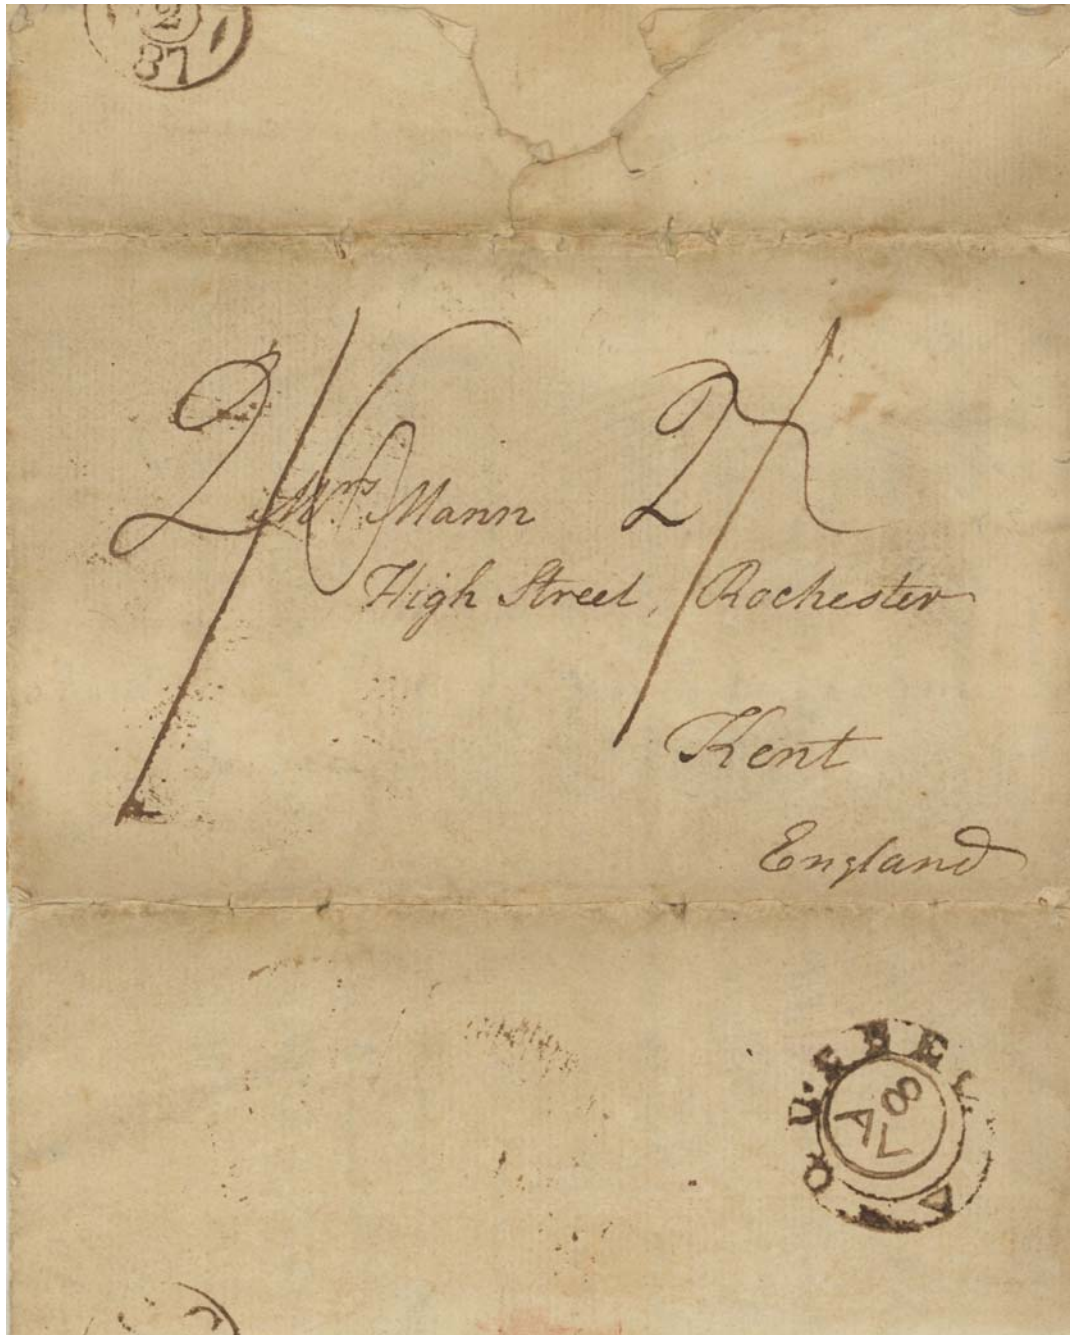 2
87
2/6
2/
Mrs Mann
High Street, Rochester
Kent
England
QUEBEC
8
AV